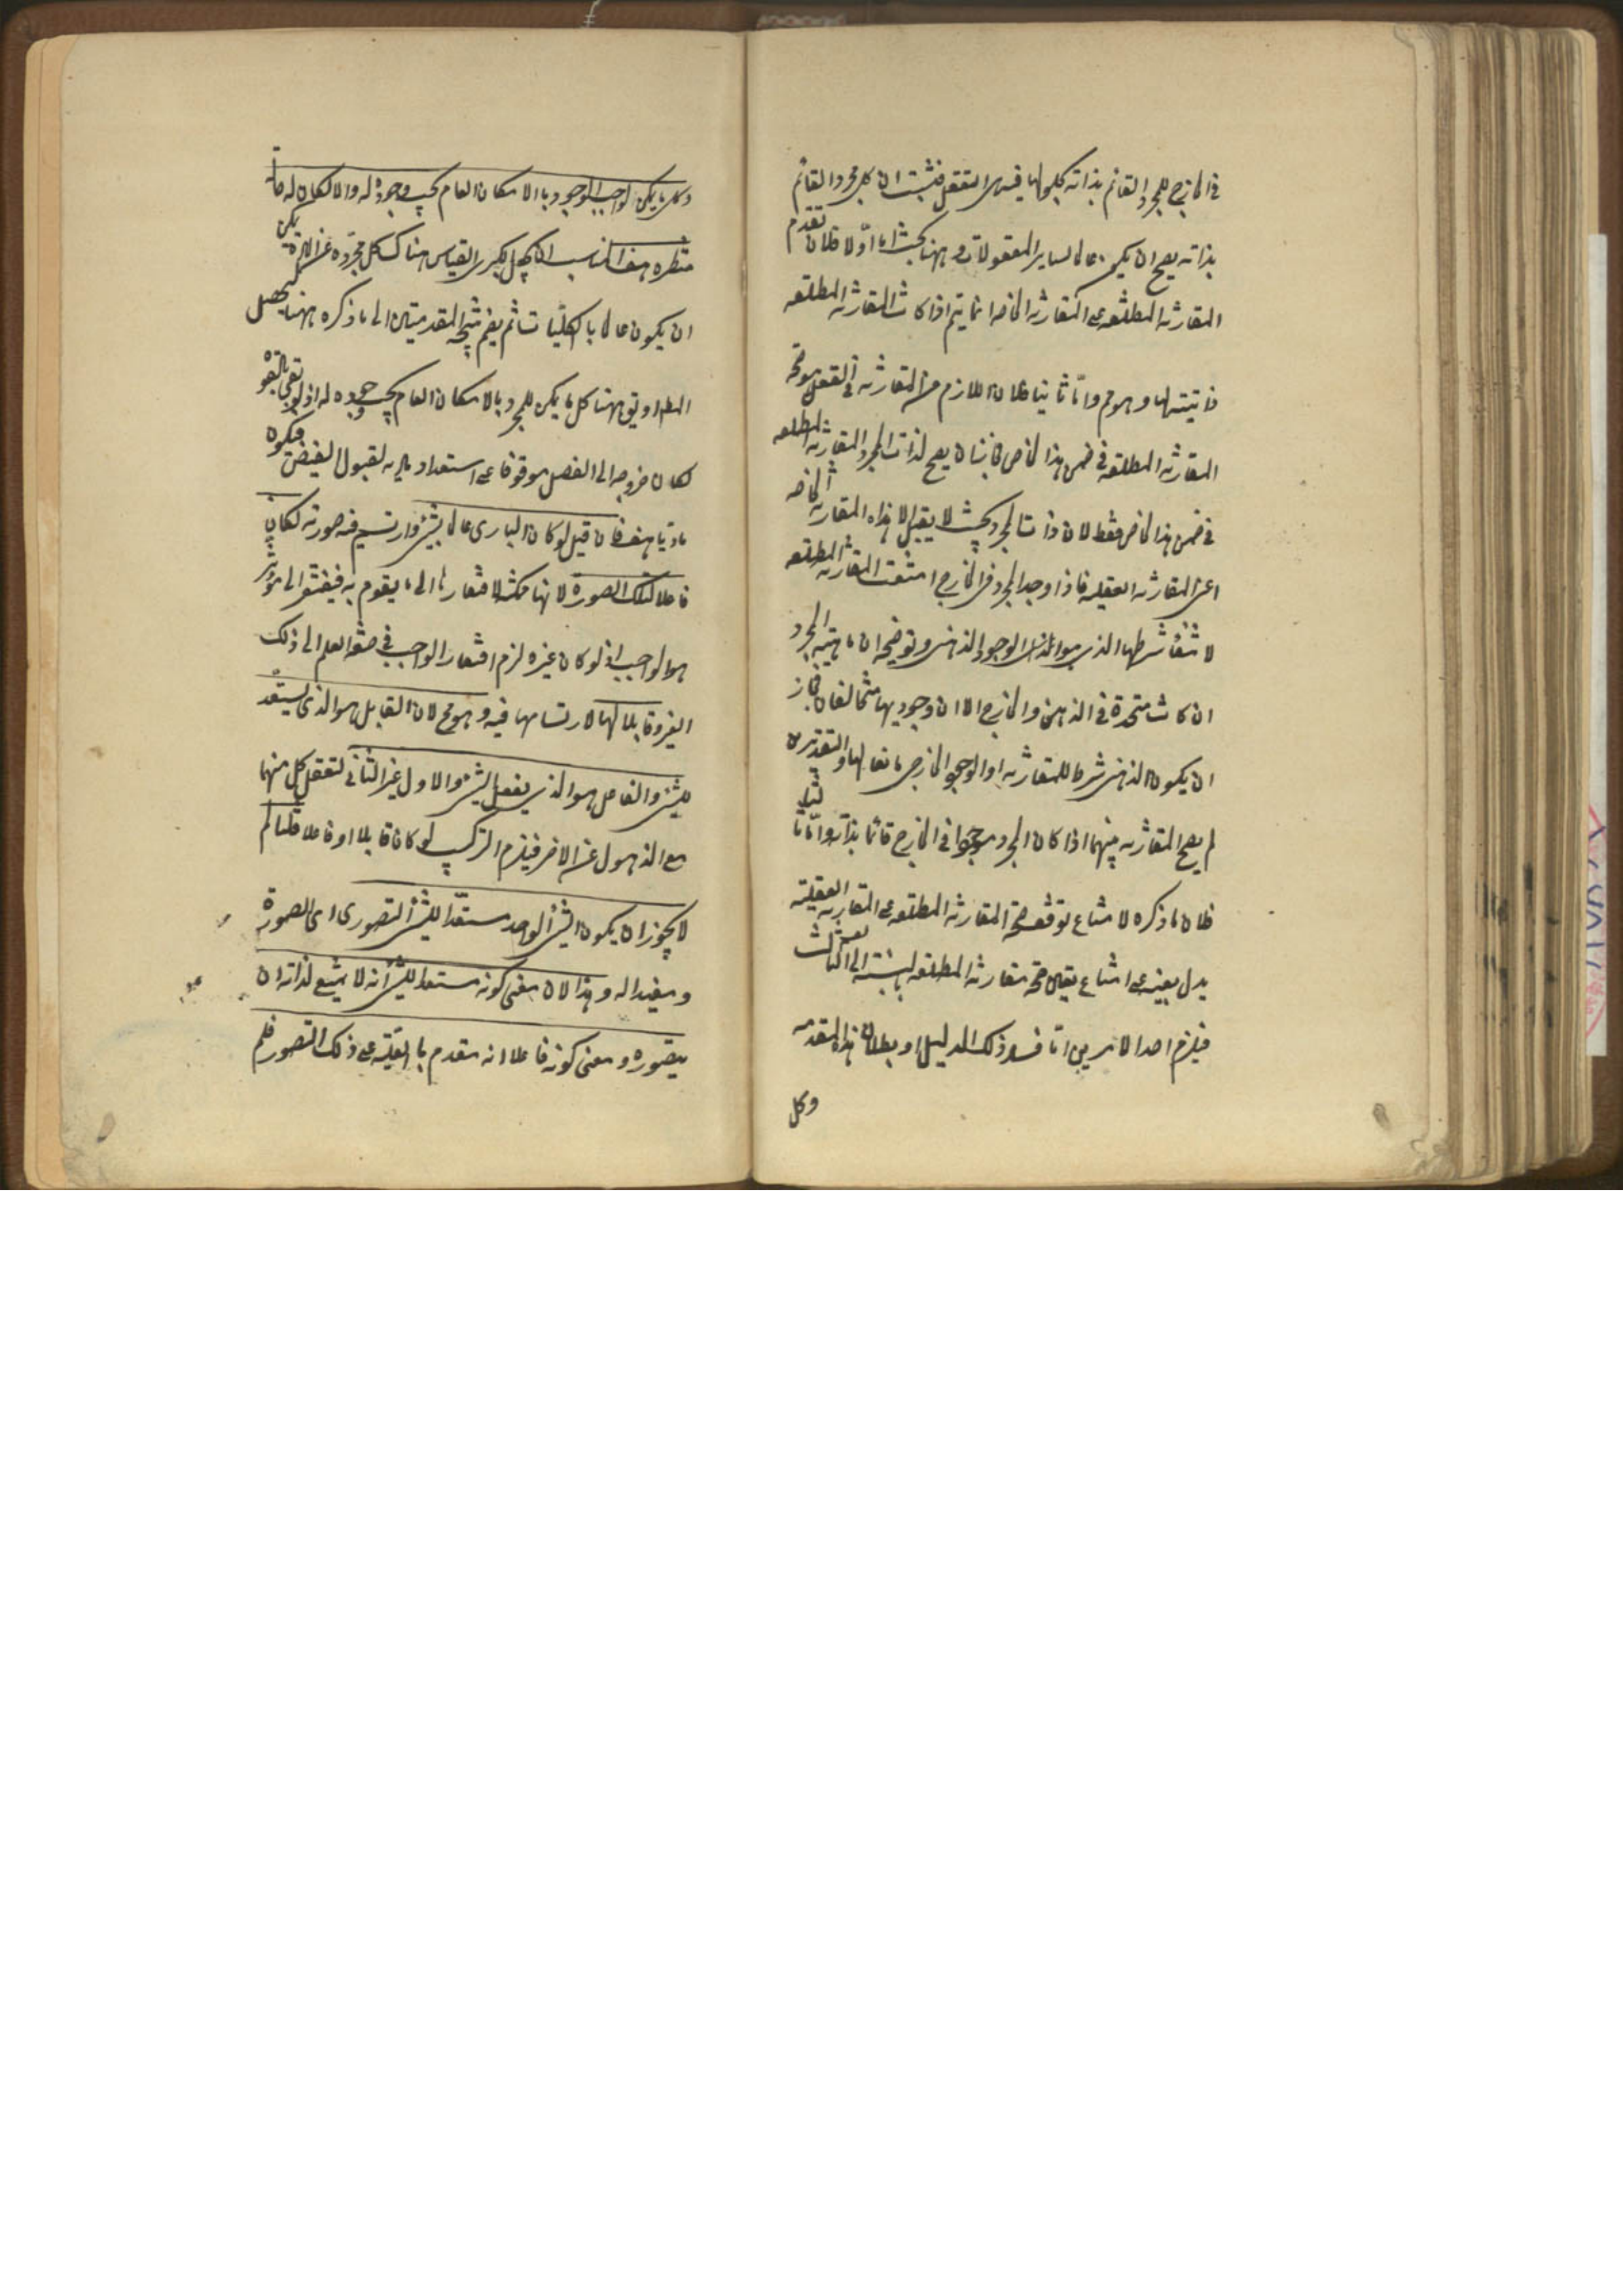 في الخارج للمجرد القائم بذاته بحلولها فيه هي التعقل فثبت ان كل مجرد القائم
بذاته يصح ان يكون عالما لساير المعقولات وههنا بحث اما اولا فلان تقدم
المقارنة المطلقة على المقارنة الخاصة انما يتم اذا كانت المقارنة المطلقة
ذاتيته لها وهو مم واما ثانيا فلان اللازم من المقارنة في العقل هو صحة
المقارنة المطلقة في ضمن هذا الخاص فجاز ان يصح لذات المجرد المقارنة المطلقة
في ضمن هذا الخاص فقط لان ذات المجرد بحيث لا يقبل الا هذه المقارنة الخاصة
اعني المقارنة العقلية فاذا وجد المجرد في الخارج امتنعت المقارنة المطلقة
لانتفاء شرطها الذي هو الوجود الذهني وتوضيحه ان ماهية المجرد
ان كانت متحدة في الذهن والخارج الا ان وجوديهما متخالفان فجاز
ان يكون الذهني شرطا للمقارنة او الوجود الخارجي مانعا لها وعلى التقديرين
لم يصح المقارنة بينهما اذا كان المجرد موجودا في الخارج قائما بذاته واما ثالثا
فلان ما ذكره لامتناع توقف صحة المقارنة المطلقة على المقارنة العقلية
يدل بعينه على امتناع توقف صحة مقارنة المطلقة بالنسبة الى الثالث
فيلزم احد الامرين اما فساد ذلك الدليل او بطلان هذه المقدمة
وكل
وكل ما يمكن لواجب الوجود بالامكان العام يجب وجوده له والا لكان له حالة
منتظرة هف المناسب ان يجعل كبرى القياس هناك كل مجرد عن المادة يمكن
ان يكون عالما بالكليات ثم يضم نتيجة المقدمتين الى ما ذكره ههنا ليحصل
المط او يقي ههنا كل ما يمكن للمجرد بالامكان العام يجب وجوده له اذ لو بقي بالقوة
لكان خروجه الى الفعل موقوفا على استعداد مادته لقبول الفيض فيكون
ماديا هف فان قيل لو كان الباري عالما بشيء وارتسم فيه صورته لكان
فاعلا لتلك الصورة لانها ممكنة لافتقارها الى ما يقوم به فيفتقر الى مؤثر
هو الواجب اذ لو كان غيره لزم افتقار الواجب في صفة العلم الى ذلك
الغير وقابلا لها لارتسامها فيه وهو مح لان القابل هو الذي يستعد
للشيء والفاعل هو الذي يفعل الشيء والاول غير الثاني لتعقل كل منهما
مع الذهول عن الاخر فيلزم التركيب لو كان قابلا وفاعلا قلنا لم
لا يجوز ان يكون الشيء الواحد مستعدا للشيء التصوري اي الصورة
ومفيدا له وهذا لان معنى كونه مستعدا للشيء انه لا يمتنع لذاته ان
يتصوره ومعنى كونه فاعلا انه متقدم بالعلية على ذلك التصور فلم